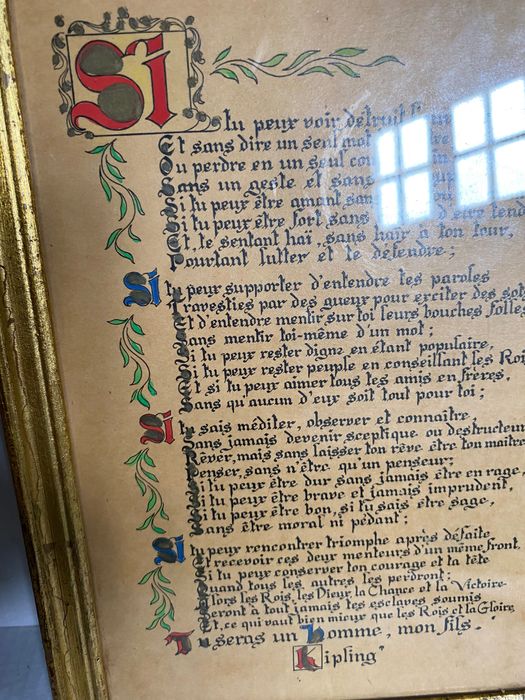 Si
tu peux voir détruit
Et sans dire un seul mot
Ou perdre en un seul
Sans un geste et sans
Si tu peux être amant sans
Si tu peux être fort sans d'être
Et, te sentant haï, sans haïr à ton tour,
Pourtant lutter et te défendre;
Si tu peux supporter d'entendre tes paroles
Travesties par des gueux pour exciter des
Et d'entendre mentir sur toi leurs bouches folles
Sans mentir toi-même d'un mot;
Si tu peux rester digne en étant populaire,
Si tu peux rester peuple en conseillant les Rois
Et si tu peux aimer tous tes amis en frères,
Sans qu'aucun d'eux soit tout pour toi;
Si tu sais méditer, observer et connaître,
Sans jamais devenir sceptique ou destructeur
Rêver, mais sans laisser ton rêve être ton maître
Penser, sans n'être qu'un penseur;
Si tu peux être dur sans jamais être en rage,
Si tu peux être brave et jamais imprudent,
Si tu peux être bon, si tu sais être sage,
Sans être moral ni pédant;
Si tu peux rencontrer triomphe après défaite
Et recevoir ces deux menteurs d'un même front,
Si tu peux conserver ton courage et ta tête
Quand tous les autres les perdront;
Alors les Rois, les Dieux, la Chance et la Victoire
Seront à tout jamais tes esclaves soumis
Et, ce qui vaut bien mieux que les Rois et la Gloire
Tu seras un homme, mon fils."
Kipling